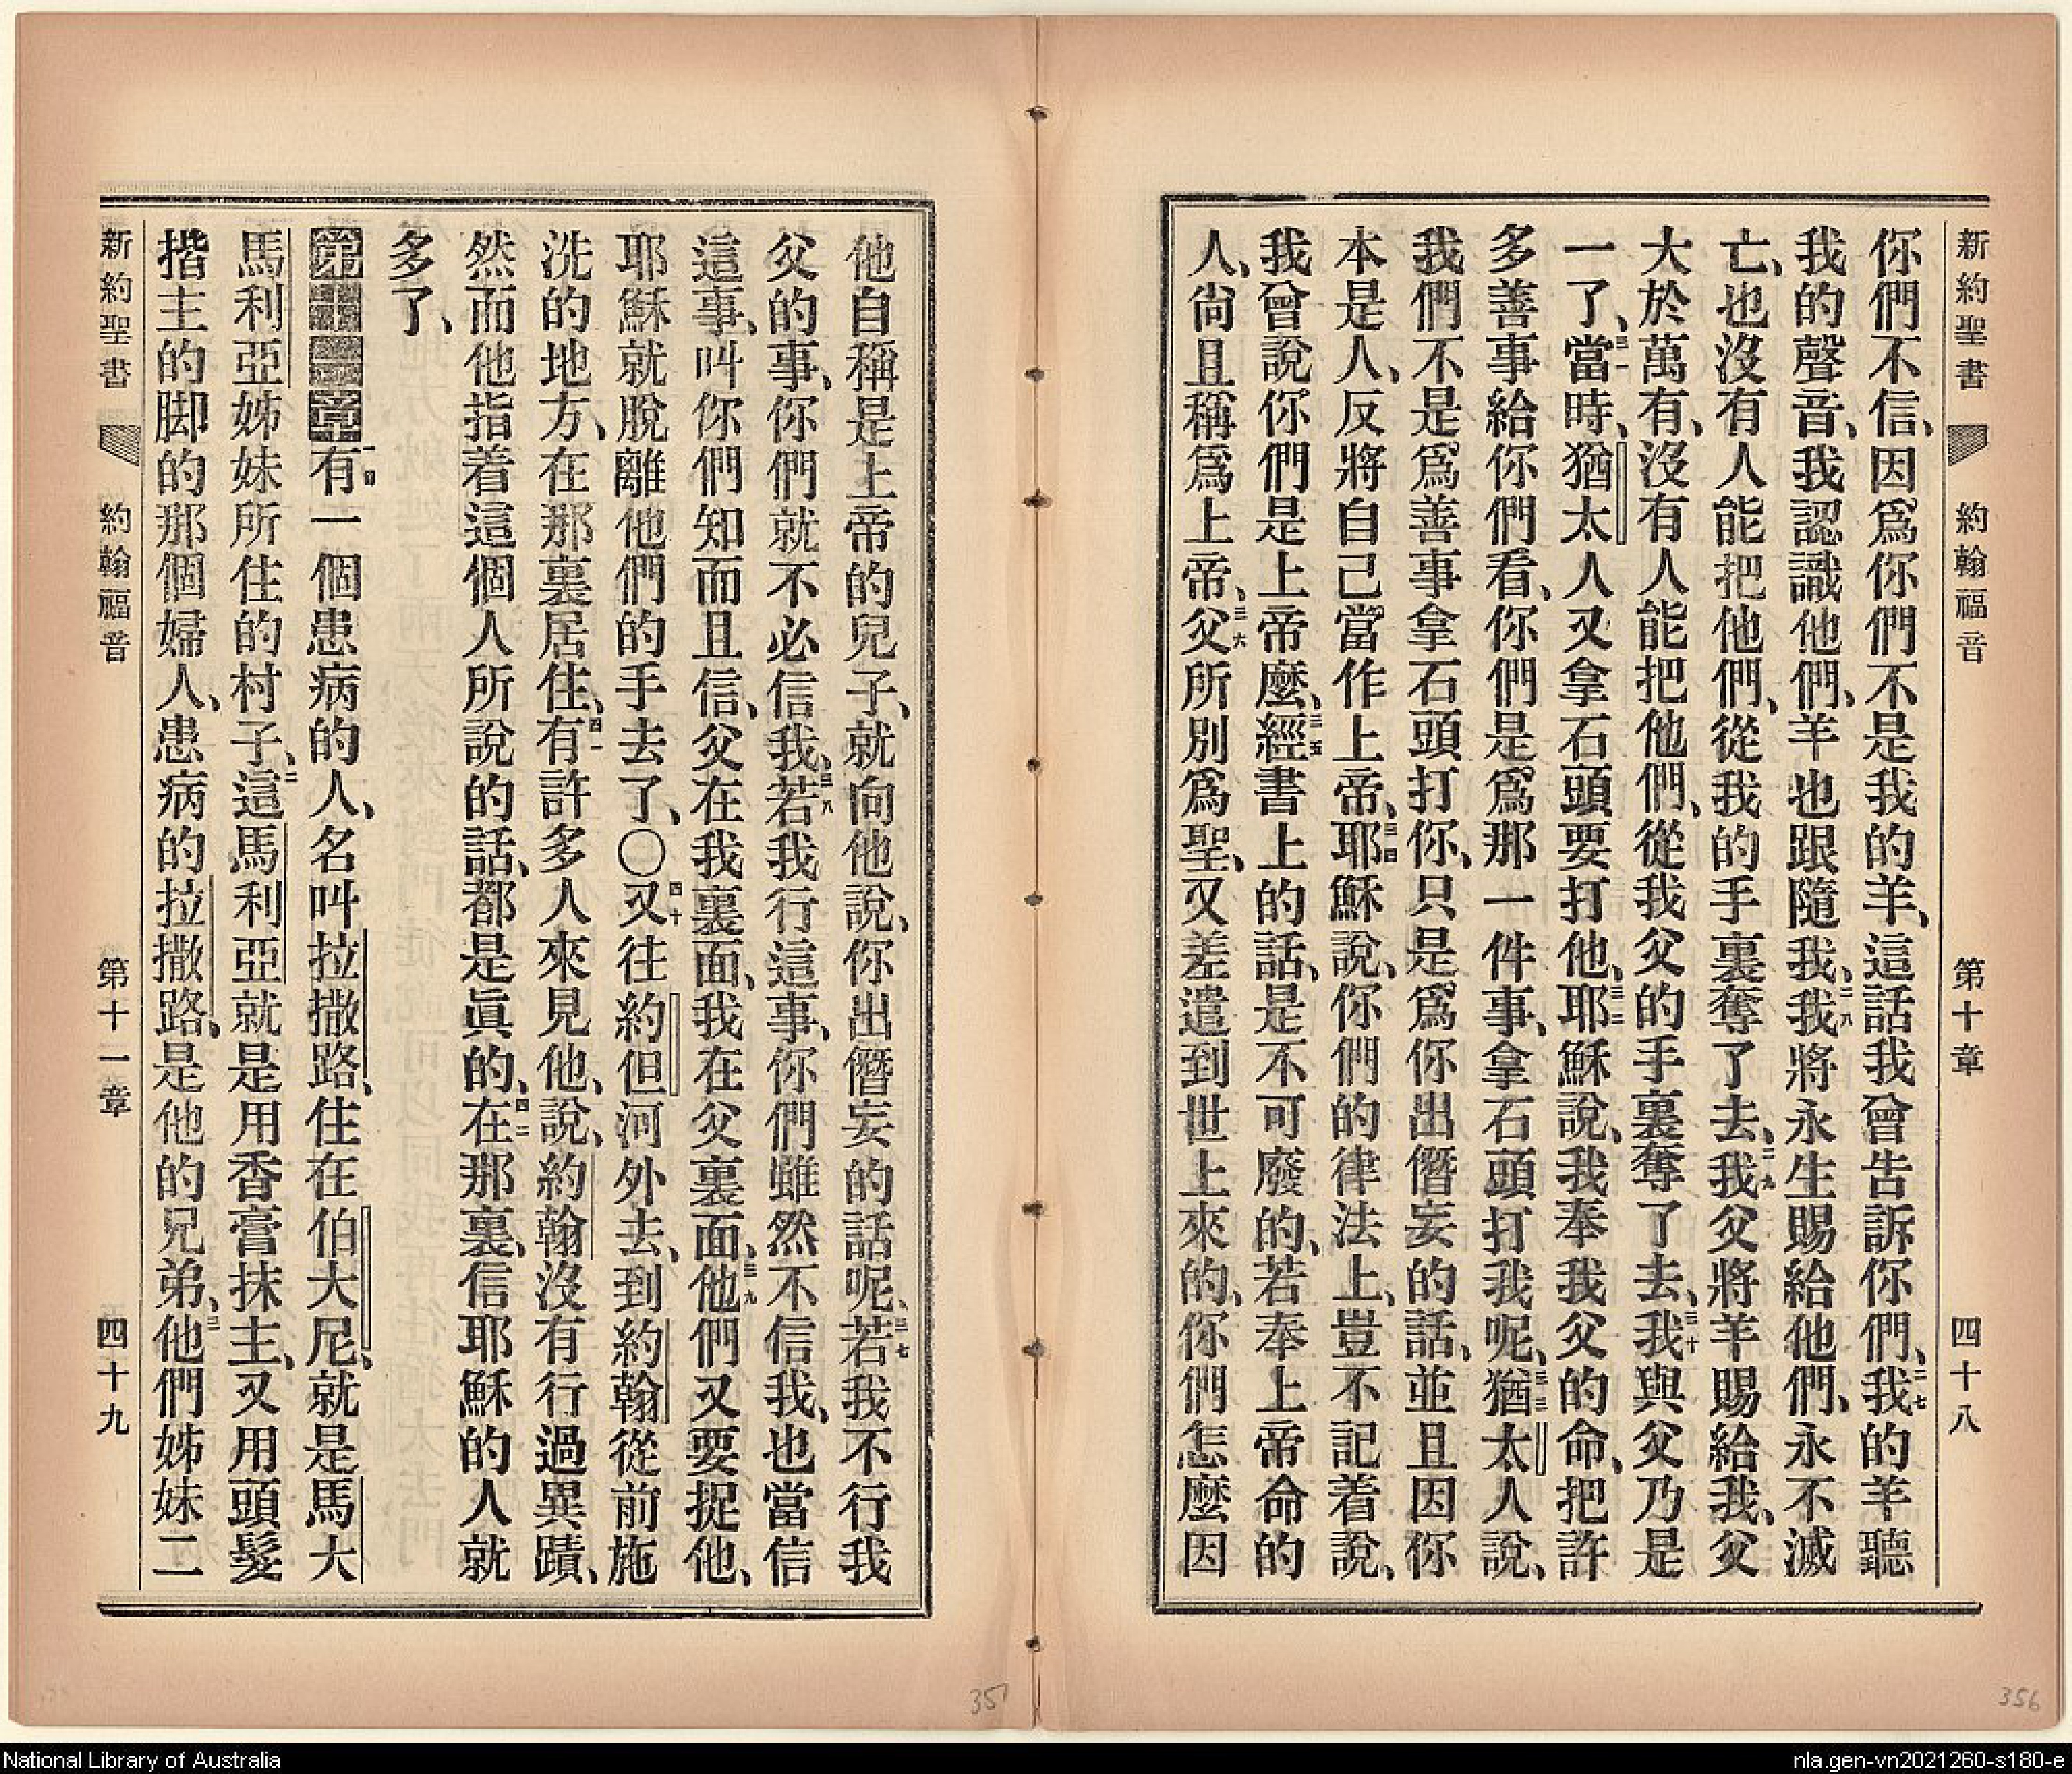 新約聖書 約翰福音 第十章 四十八
你們不信、因爲你們不是我的羊、這話我曾告訴你們、二七我的羊聽
我的聲音、我認識他們、羊也跟隨我、二八我將永生賜給他們、永不滅
亡、也沒有人能把他們、從我的手裏奪了去、二九我父將羊賜給我、父
大於萬有、沒有人能把他們、從我父的手裏奪了去、三十我與父乃是
一了、三一當時、猶太人又拿石頭要打他、三二耶穌說、我奉我父的命、把許
多善事給你們看、你們是爲那一件事、拿石頭打我呢、三三猶太人說、
我們不是爲善事拿石頭打你、只是爲你出僭妄的話、並且因你
本是人、反將自己當作上帝、三四耶穌說、你們的律法上、豈不記着說、
我曾說你們是上帝麼、三五經書上的話、是不可廢的、若奉上帝命的
人、尙且稱爲上帝、三六父所別爲聖、又差遣到世上來的、你們怎麼因
他自稱是上帝的兒子、就向他說、你出僭妄的話呢、三七若我不行我
父的事、你們就不必信我、三八若我行這事、你們雖然不信我、也當信
這事、叫你們知而且信、父在我裏面、我在父裏面、三九他們又要捉他、
耶穌就脫離他們的手去了、〇四十又往約但河外去、到約翰從前施
洗的地方、在那裏居住、四一有許多人來見他、說、約翰沒有行過異蹟、
然而他指着這個人所說的話、都是眞的、四二在那裏、信耶穌的人就
多了、
第十一章一有一個患病的人、名叫拉撒路、住在伯大尼、就是馬大
馬利亞姊妹所住的村子、二這馬利亞就是用香膏抹主、又用頭髮
揩主的脚的那個婦人、患病的拉撒路、是他的兄弟、三他們姊妹二
新約聖書 約翰福音 第十一章 四十九
357
356
National Library of Australia
nla.gen-vn2021260-s180-e